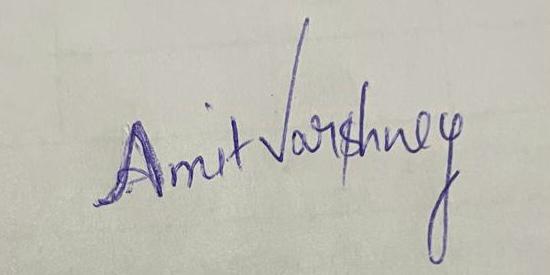 Amit Varshney